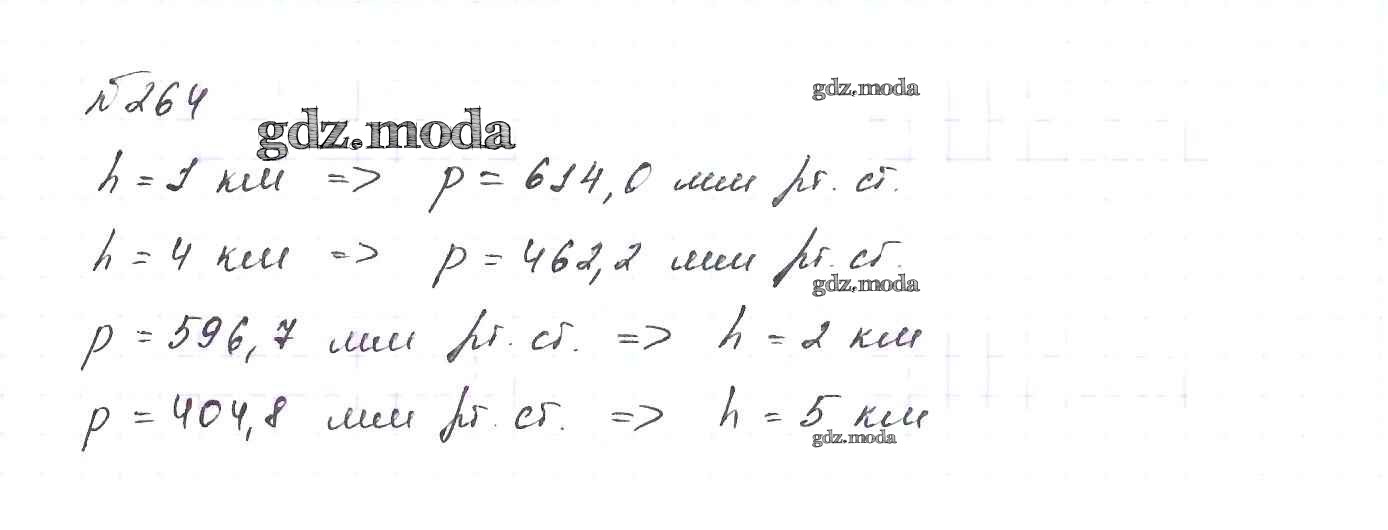 №264
gdz.moda
gdz.moda
h = 1 км => p = 614,0 мм рт. ст.
h = 4 км => p = 462,2 мм рт. ст.
gdz.moda
p = 596,7 мм рт. ст. => h = 2 км
p = 404,8 мм рт. ст. => h = 5 км
gdz.moda